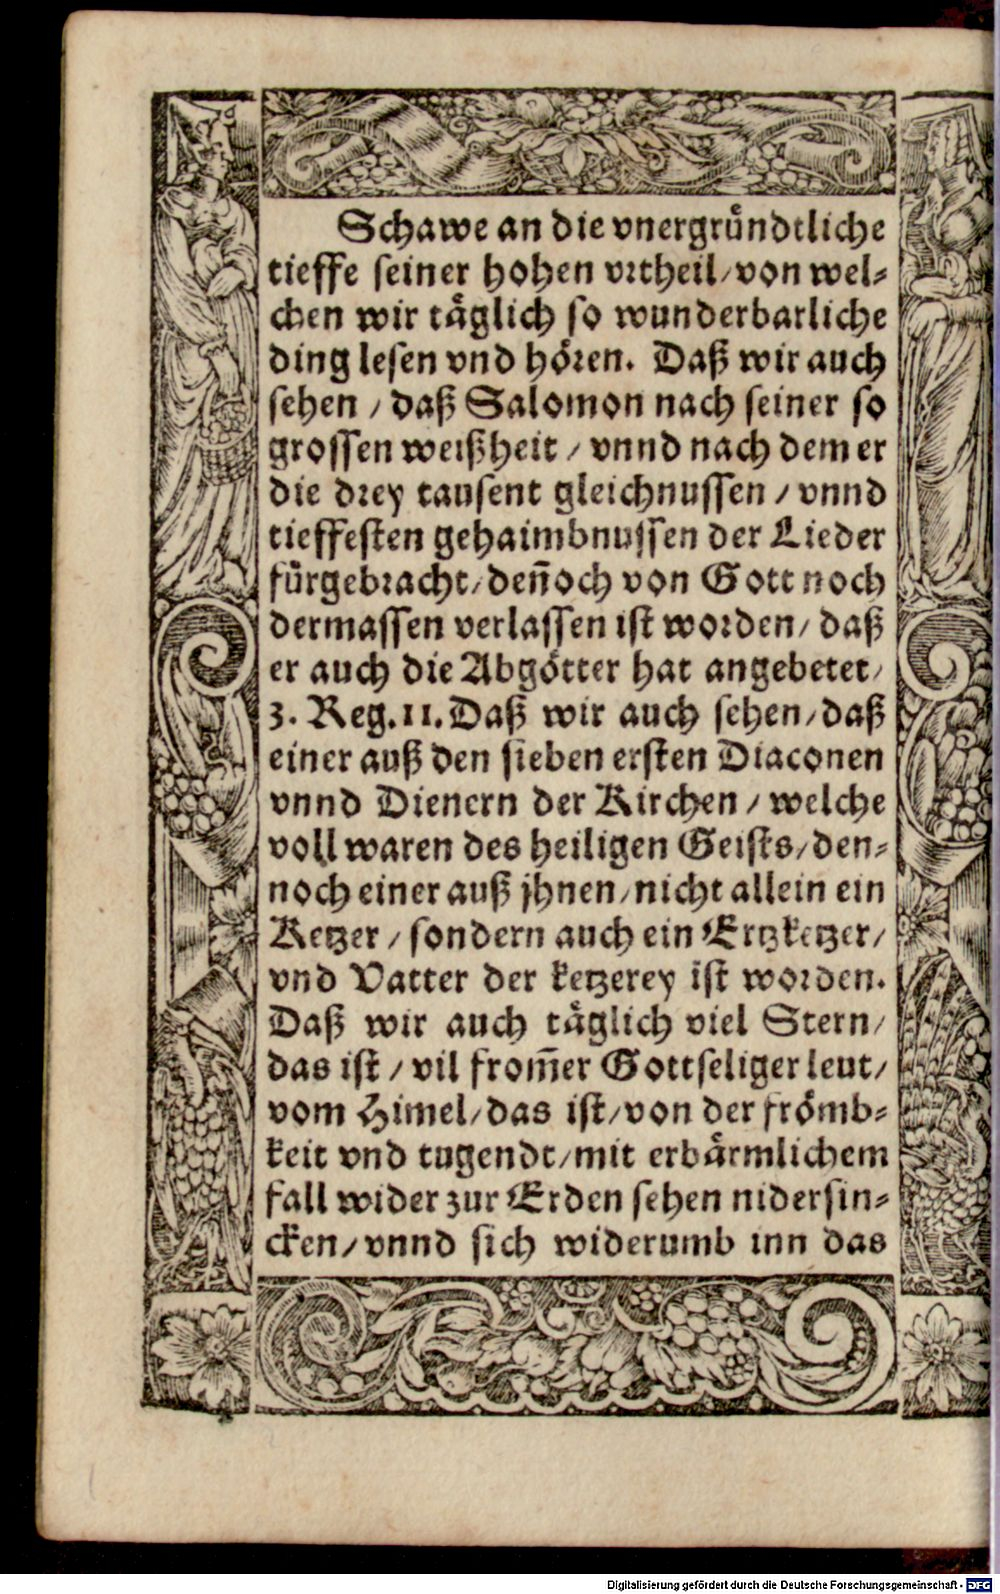 Schawe an die vnergründtliche
tieffe seiner hohen vrtheil/von wel⸗
chen wir täglich so wunderbarliche
ding lesen vnd hören. Daß wir auch
sehen / daß Salomon nach seiner so
grossen weißheit / vnnd nach dem er
die drey tausent gleichnussen / vnnd
tieffesten gehaimbnussen der Lieder
fürgebracht/ deñoch von Gott noch
dermassen verlassen ist worden/ daß
er auch die Abgötter hat angebetet/
3. Reg. 11. Daß wir auch sehen/daß
einer auß den sieben ersten Diaconen
vnnd Dienern der Kirchen / welche
voll waren des heiligen Geists/den⸗
noch einer auß jhnen/nicht allein ein
Ketzer / sondern auch ein Ertzketzer/
vnd Vatter der ketzerey ist worden.
Daß wir auch täglich viel Stern/
das ist / vil from̃er Gottseliger leut/
vom Himel/das ist/von der frömb⸗
keit vnd tugendt/mit erbärmlichem
fall wider zur Erden sehen nidersin⸗
cken/vnnd sich widerumb inn das
Digitalisierung gefördert durch die Deutsche Forschungsgemeinschaft - DFG